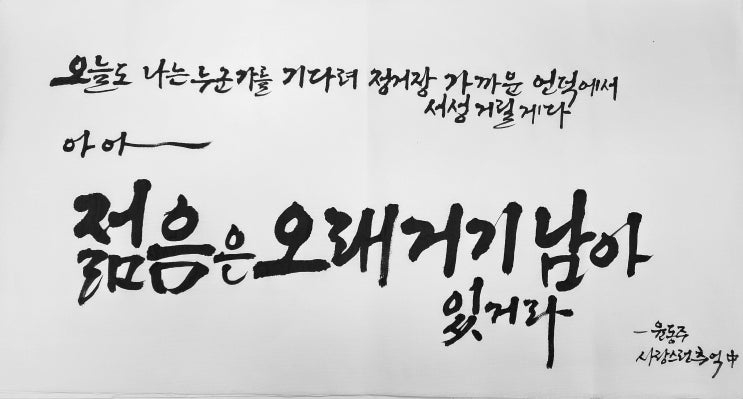 오늘도 나는 누군가를 기다려 정거장 가까운 언덕에서
서성거릴게다
아아ㅡ
젊음은 오래 거기 남아
있거라
- 윤동주
사랑스런 추억 中